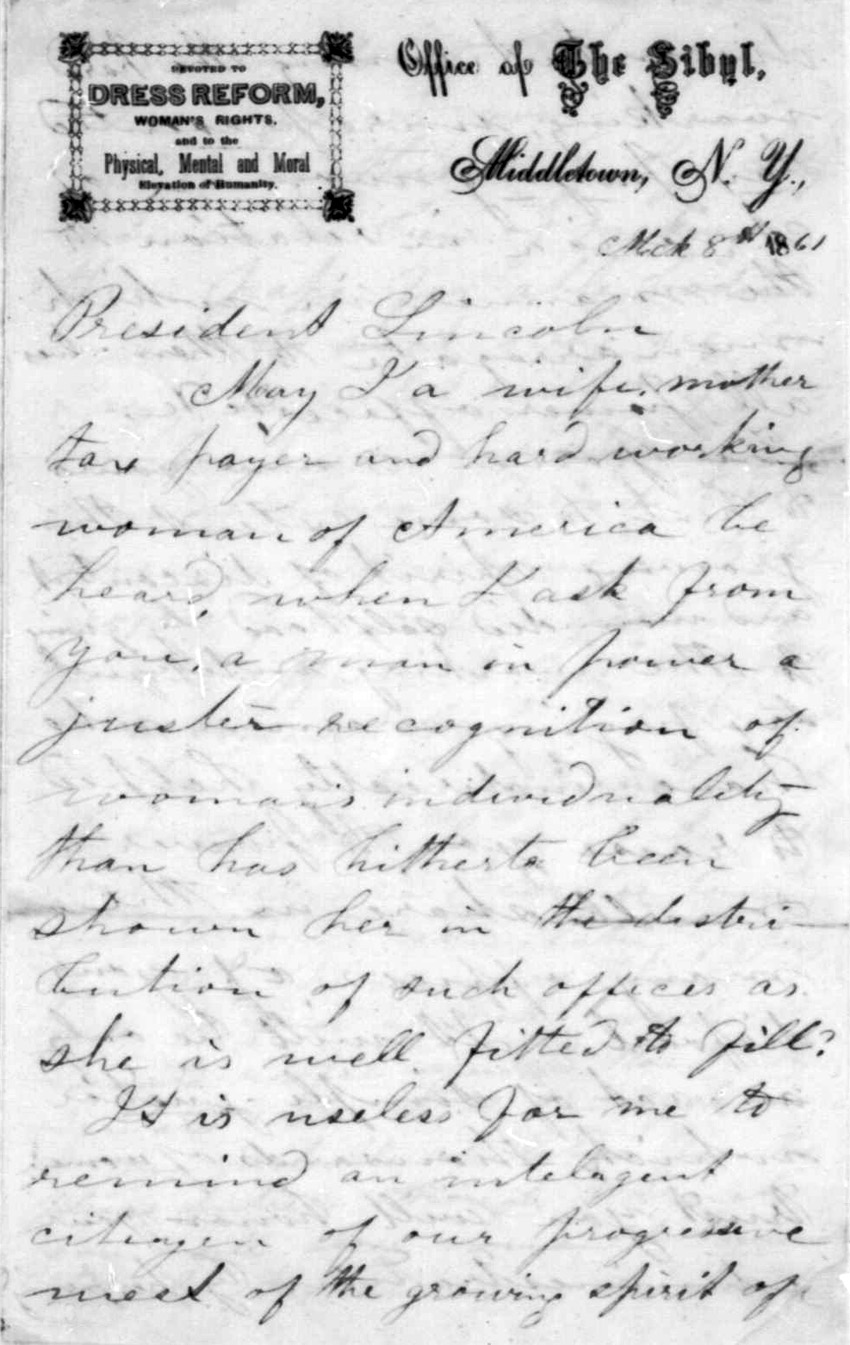 DEVOTED TO
DRESS REFORM,
WOMAN'S RIGHTS,
and to the
Physical, Mental and Moral
Elevation of Humanity.
Office of The Sibyl,
Middletown, N. Y.,
Mch 8th 1861
President Lincoln
May I a wife, mother
tax payer and hard working
woman of America be
heard, when I ask from
you, a man in power a
juster recognition of
woman's individuality
than has hitherto been
shown her in the distri-
bution of such offices as
she is well fitted to fill?
It is useless for me to
remind an inteligent
citizen of our progressive
west of the growing spirit of